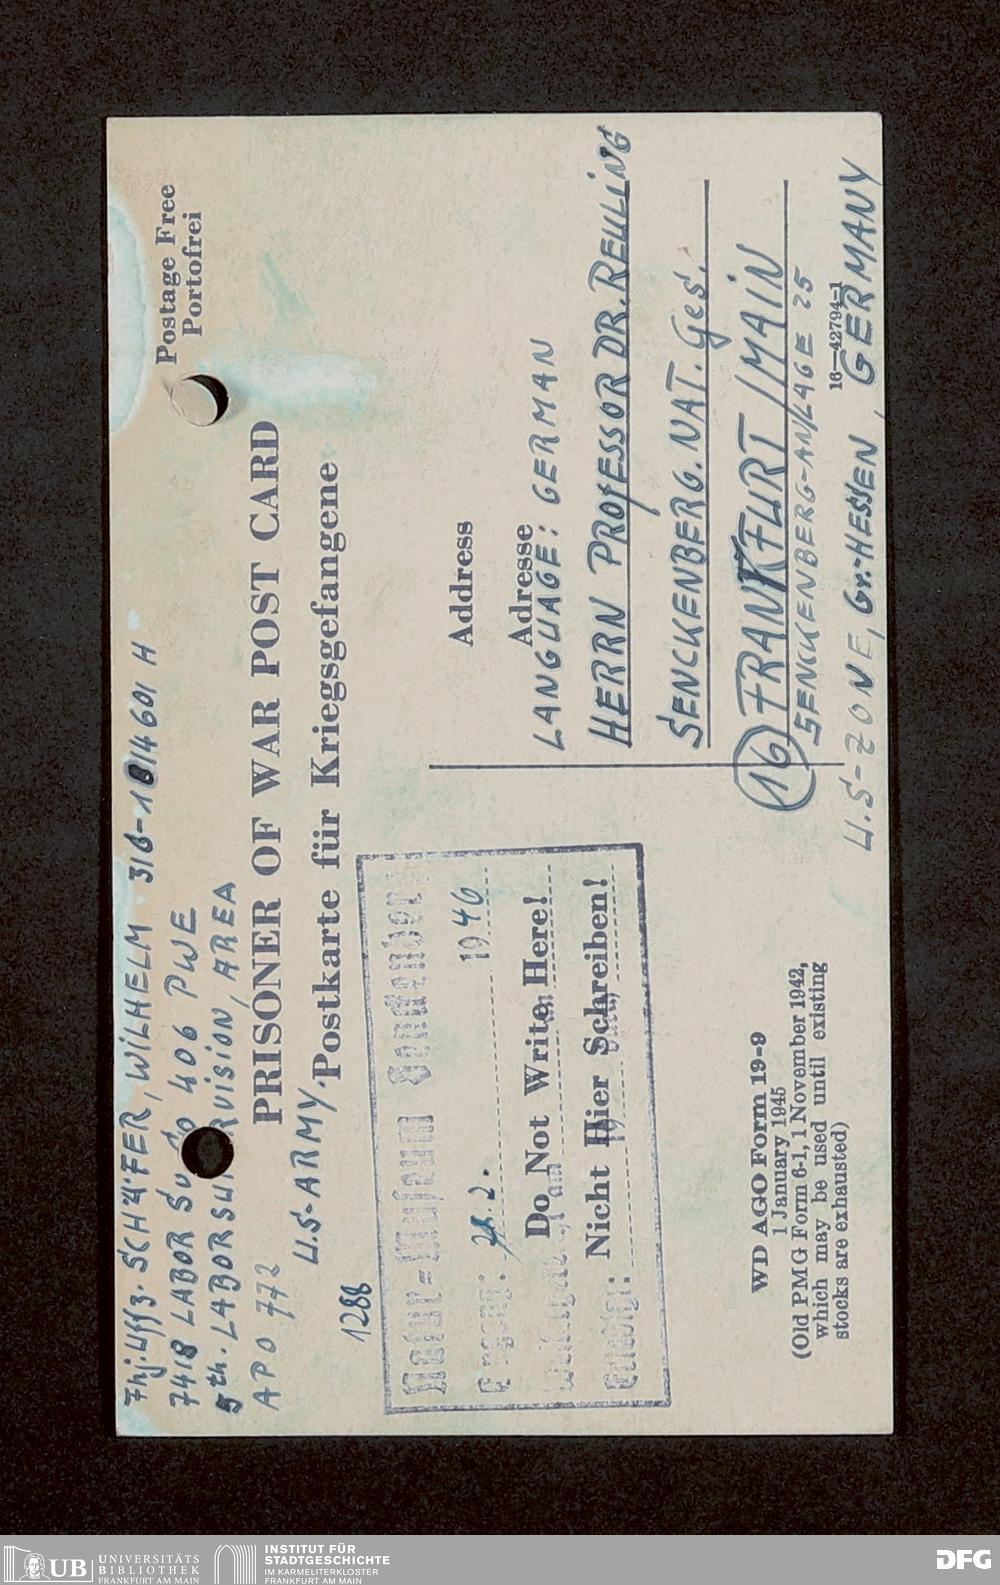 Fhj. Uffz. SCHÄFER, WILHELM 31G-1814601 H
7418 LABOR SV Co 406 PWE
5th. LABORSU RVISION, AREA
APO 772
U.S-ARMY.
Postage Free
Portofrei
PRISONER OF WAR POST CARD
Postkarte für Kriegsgefangene
1288
Natur-Museum Senckenberg
2. 1946
Do Not Write Here!
Nicht Hier Schreiben!
Address
Adresse
LANGUAGE: GERMAN
HERRN PROFESSOR DR. REULING
SENCKENBERG. NAT. Ges.
16 FRANKFURT/MAIN
SENCKENBERG-ANLAGE 25
16—42794-1
U.S-ZONE, Gr.-HESSEN, GERMANY
WD AGO Form 19-9
1 January 1945
(Old PMG Form 6-1, 1 November 1942,
which may be used until existing
stocks are exhausted)
UB UNIVERSITÄTS
BIBLIOTHEK
FRANKFURT AM MAIN
INSTITUT FÜR
STADTGESCHICHTE
IM KARMELITERKLOSTER
FRANKFURT AM MAIN
DFG